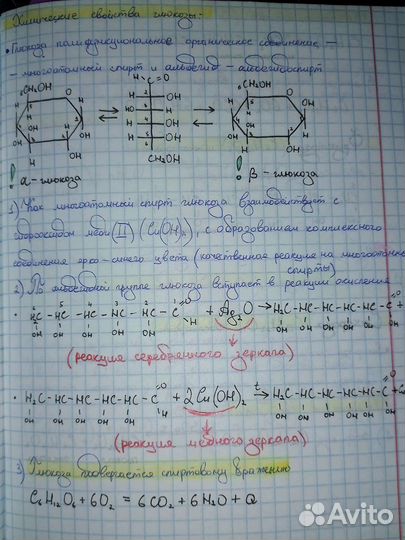 Химические свойства глюкозы:
• Глюкоза полифункциональное органическое соединение -
- многоатомный спирт и альдегид - альдегидоспирт
CH₂OH
H C=O
CH₂OH
CH₂OH
! α - глюкоза
! β - глюкоза
1) Как многоатомный спирт глюкоза взаимодействует с
гидроксидом меди (II) (Cu(OH)₂), с образованием комплексного
соединения ярко-синего цвета (качественная реакция на многоатомные
спирты)
2) По альдегидной группе глюкоза вступает в реакции окисления
• H₂C - HC - HC - HC - HC - C =O H + Ag₂O → H₂C - HC - HC - HC - HC - C =O +
OH OH OH OH OH OH OH OH OH OH OH
(реакция серебряного зеркала)
• H₂C - HC - HC - HC - HC - C =O H + 2Cu(OH)₂ t→ H₂C - HC - HC - HC - HC - C =O +
OH OH OH OH OH OH OH OH OH OH OH
(реакция медного зеркала)
3) Глюкоза подвергается спиртовому брожению
C₆H₁₂O₆ + 6O₂ = 6CO₂ + 6H₂O + Q
Avito